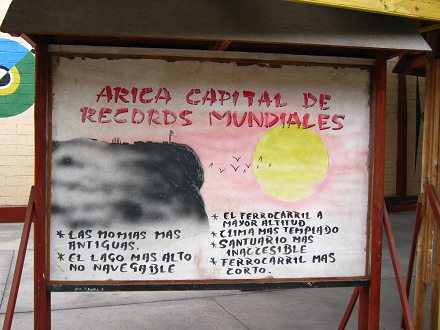 ARICA CAPITAL DE
RECORDS MUNDIALES
* LAS MOMIAS MAS
ANTIGUAS.
* EL LAGO MAS ALTO
NO NAVEGABLE
* EL FERROCARRIL A
MAYOR ALTITUD
* CLIMA MAS TEMPLADO
* SANTUARIO MAS
INACCESIBLE
* FERROCARRIL MAS
CORTO.